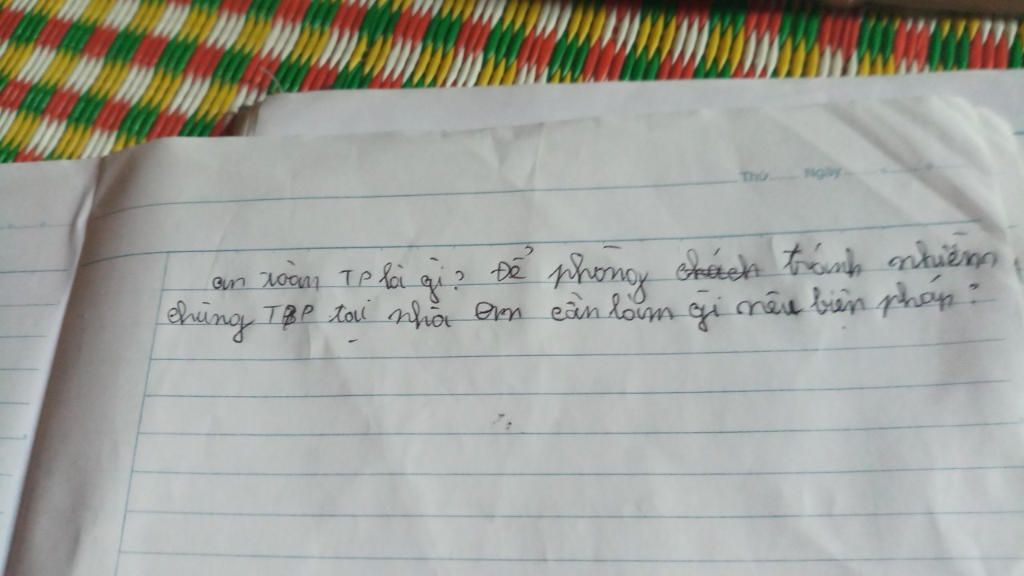 Thứ...... Ngày......
an toàn TP là gì? Để phòng tránh nhiễm
chùng TP tại nhà em cần làm gì nêu biện pháp?